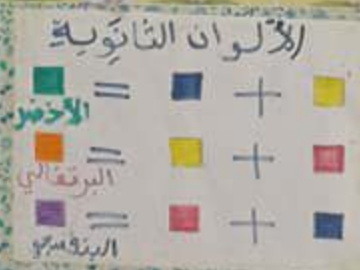 الألوان الثانوية
= +
الأخضر
= +
البرتقالي
= +
البنفسجي